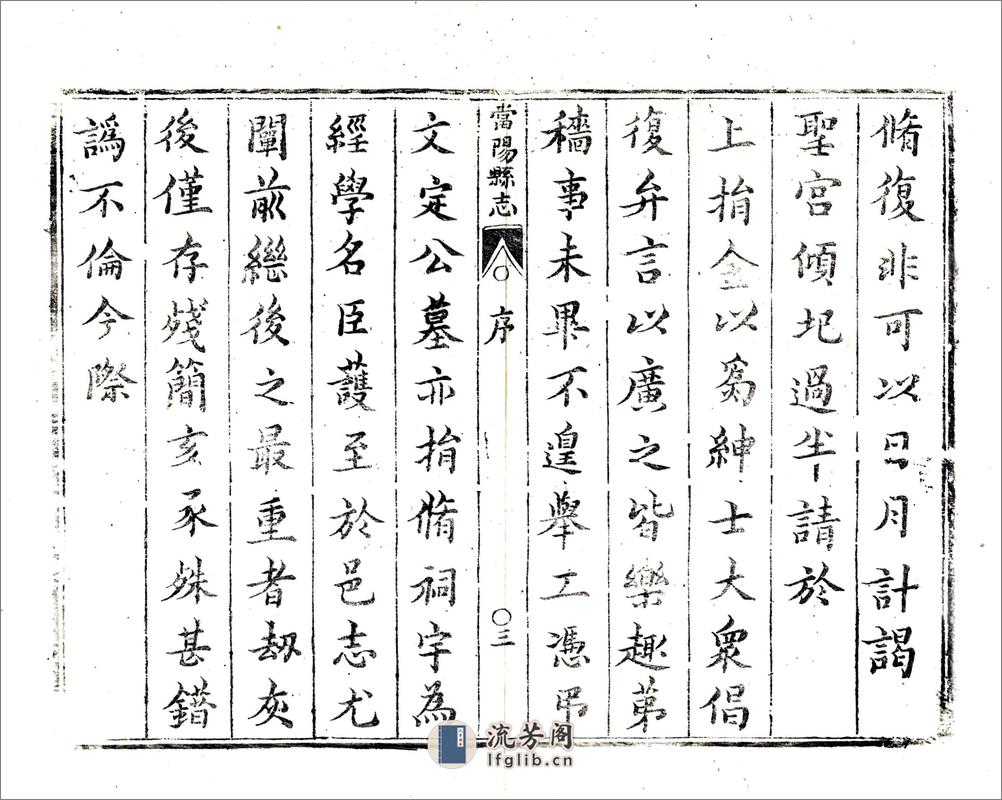 脩復非可以日月計謁
聖宮傾圮過半請於
上捐金以為紳士大衆倡
復弁言以廣之皆樂趣第
穡事未畢不遑舉工憑弔
當陽縣志
序
三
文定公墓亦捐脩祠宇為
經學名臣護至於邑志尤
闡前繼後之最重者刼灰
後僅存殘簡亥豕殊甚錯
譌不倫今際
流芳阁
lfglib.cn